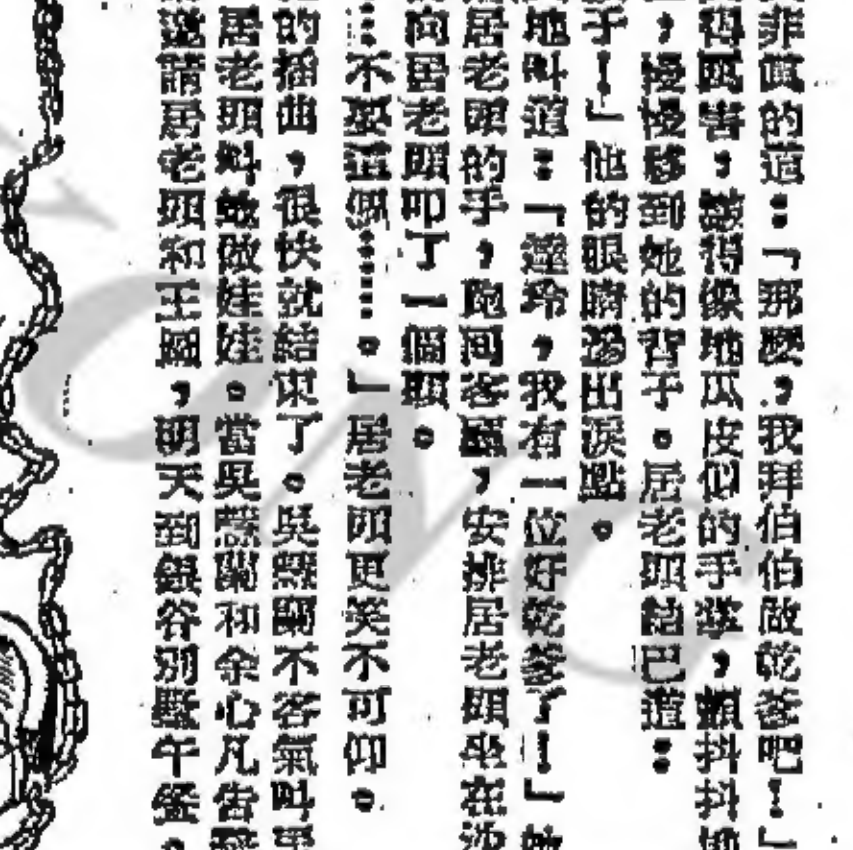 非真的道：「那麼，我拜伯伯做乾爹吧！」
得厲害，皺得像地瓜皮似的手掌，顫抖抖
，慢慢移到她的背子。居老頭結巴道：
子！」他的眼睛湯出淚點。
地叫道：「蓮玲，我有一位好乾爹了！」她
居老頭的手，跑回客廳，安排居老頭坐在沙
向居老頭叩了一個頭。
……不要這個……。」居老頭更笑不可仰。
的插曲，很快就結束了。吳慧蘭不客氣叫
居老頭叫她做娃娃。當吳慧蘭和余心凡告辭
邀請居老頭和王國，明天到銀谷別墅午餐。